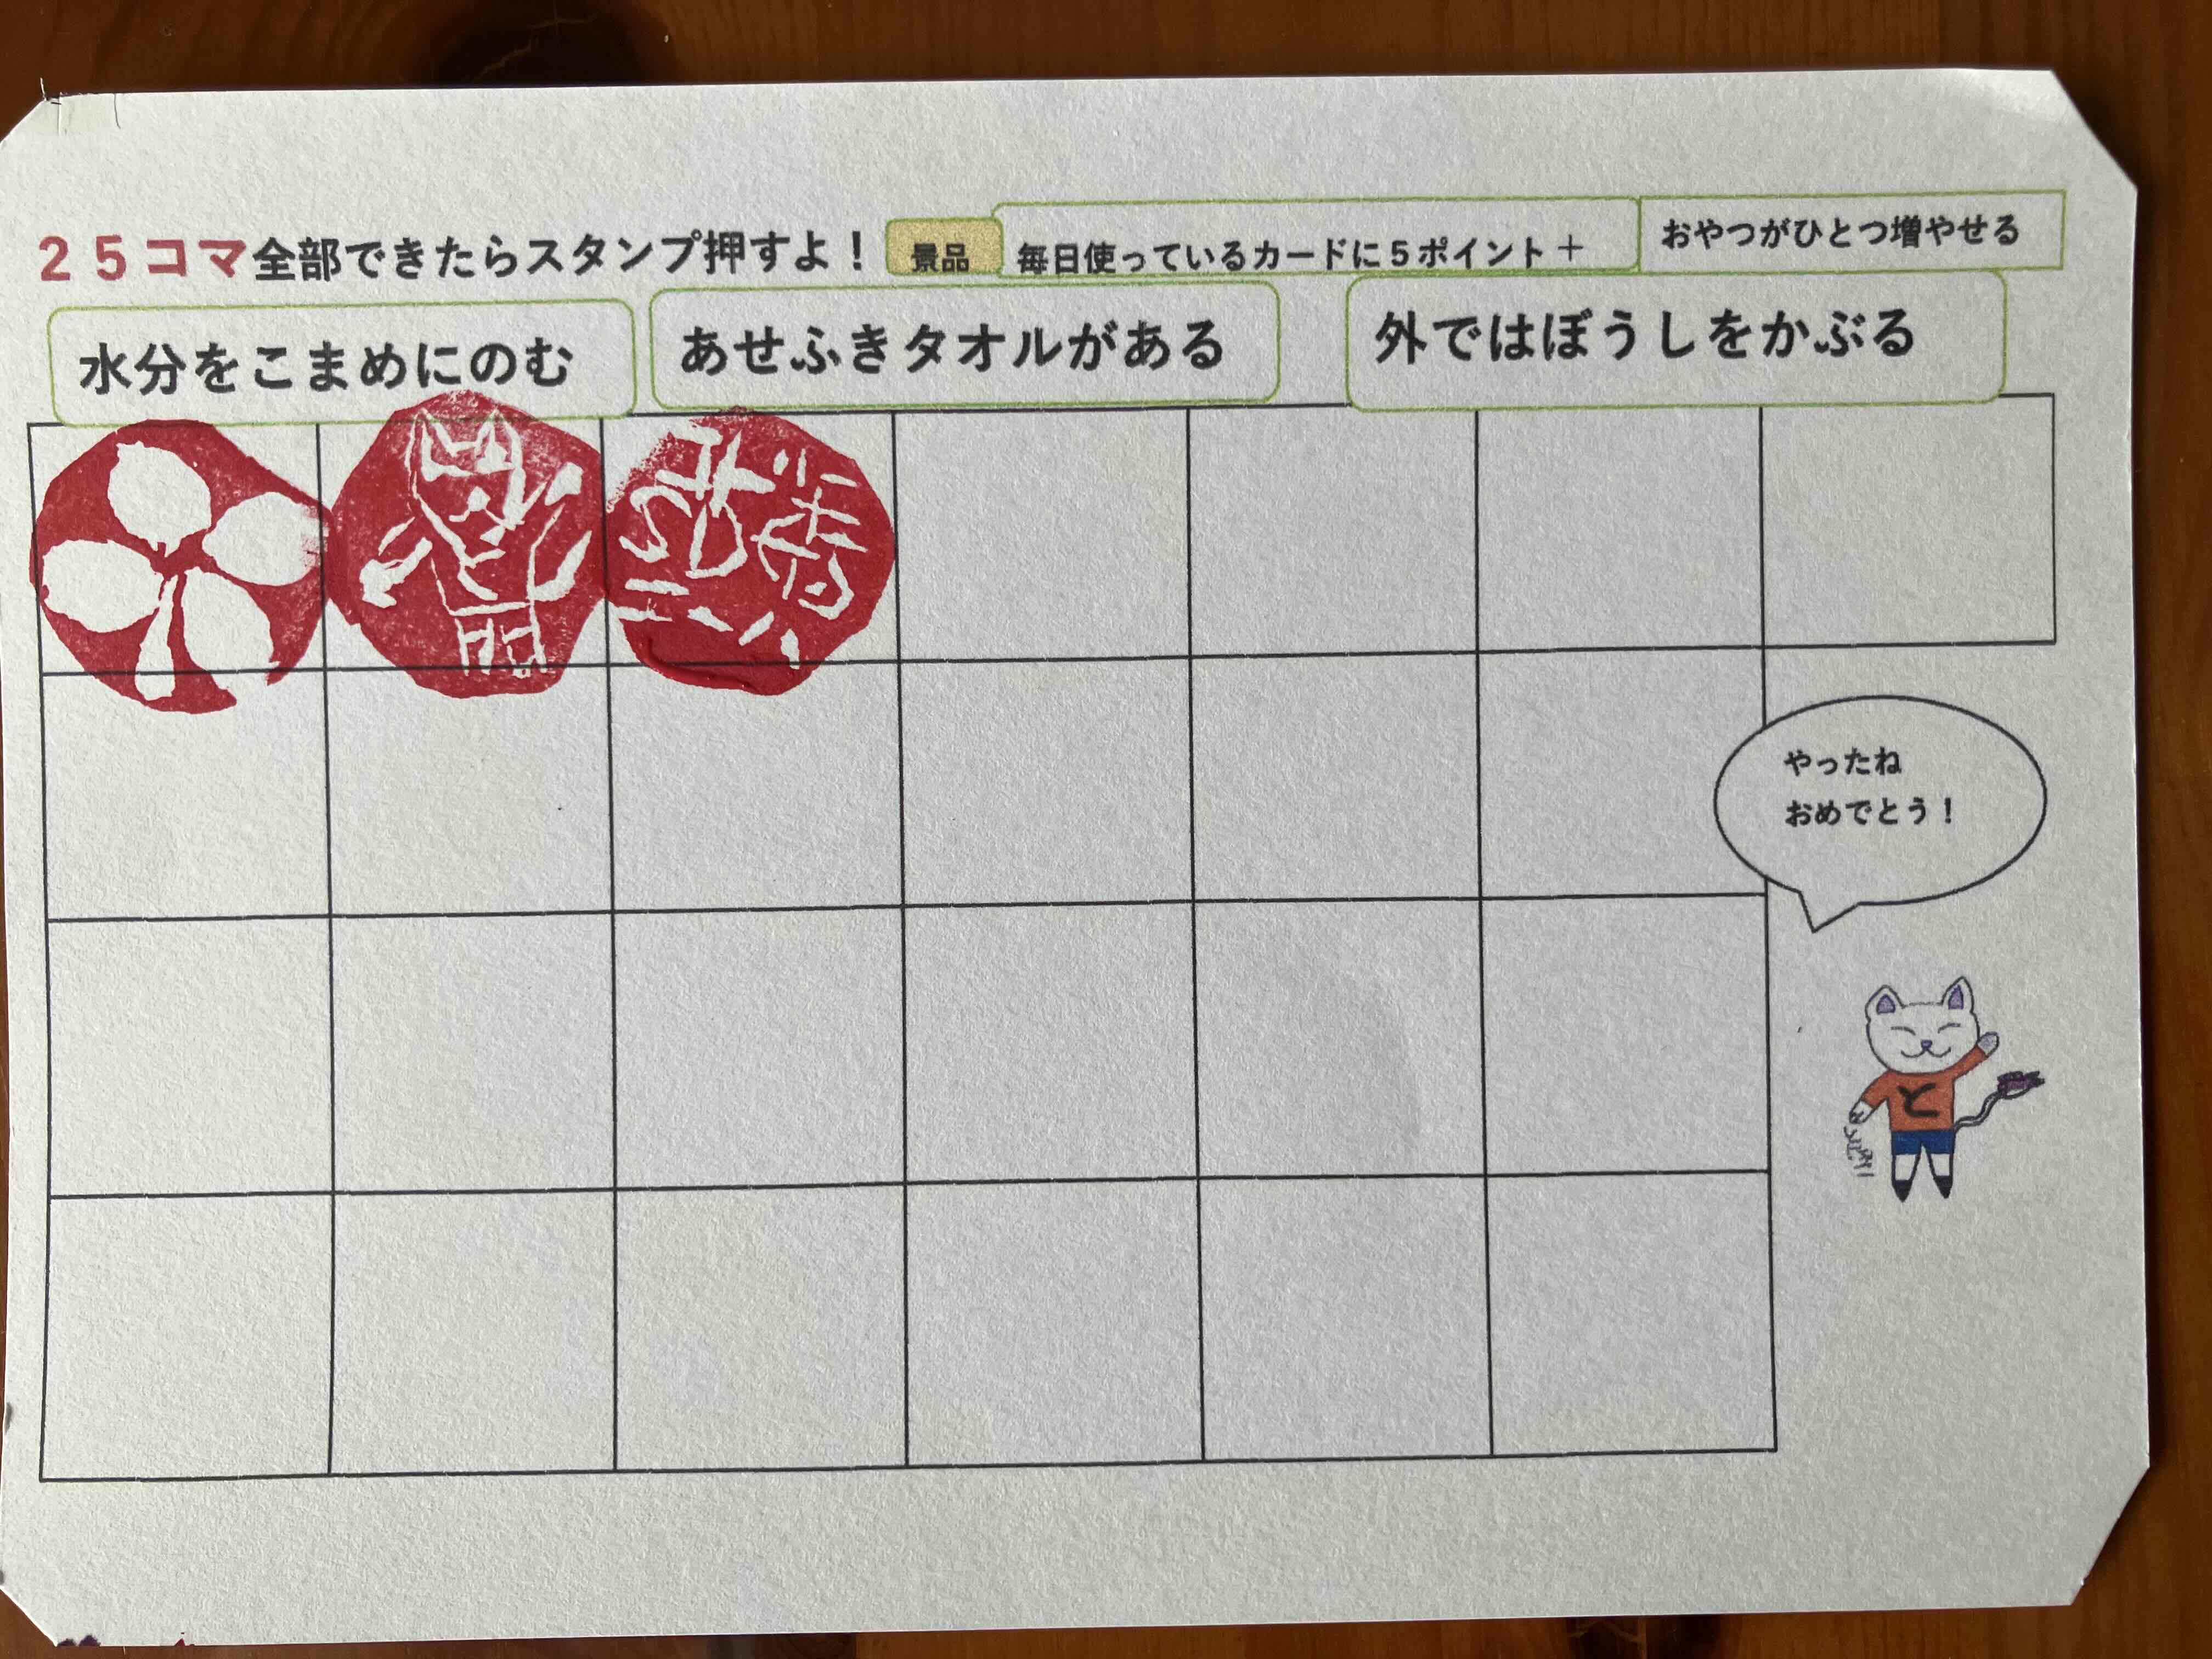 ２５コマ全部できたらスタンプ押すよ！
景品
毎日使っているカードに５ポイント＋
おやつがひとつ増やせる
水分をこまめにのむ
あせふきタオルがある
外ではぼうしをかぶる
やったね
おめでとう！
と